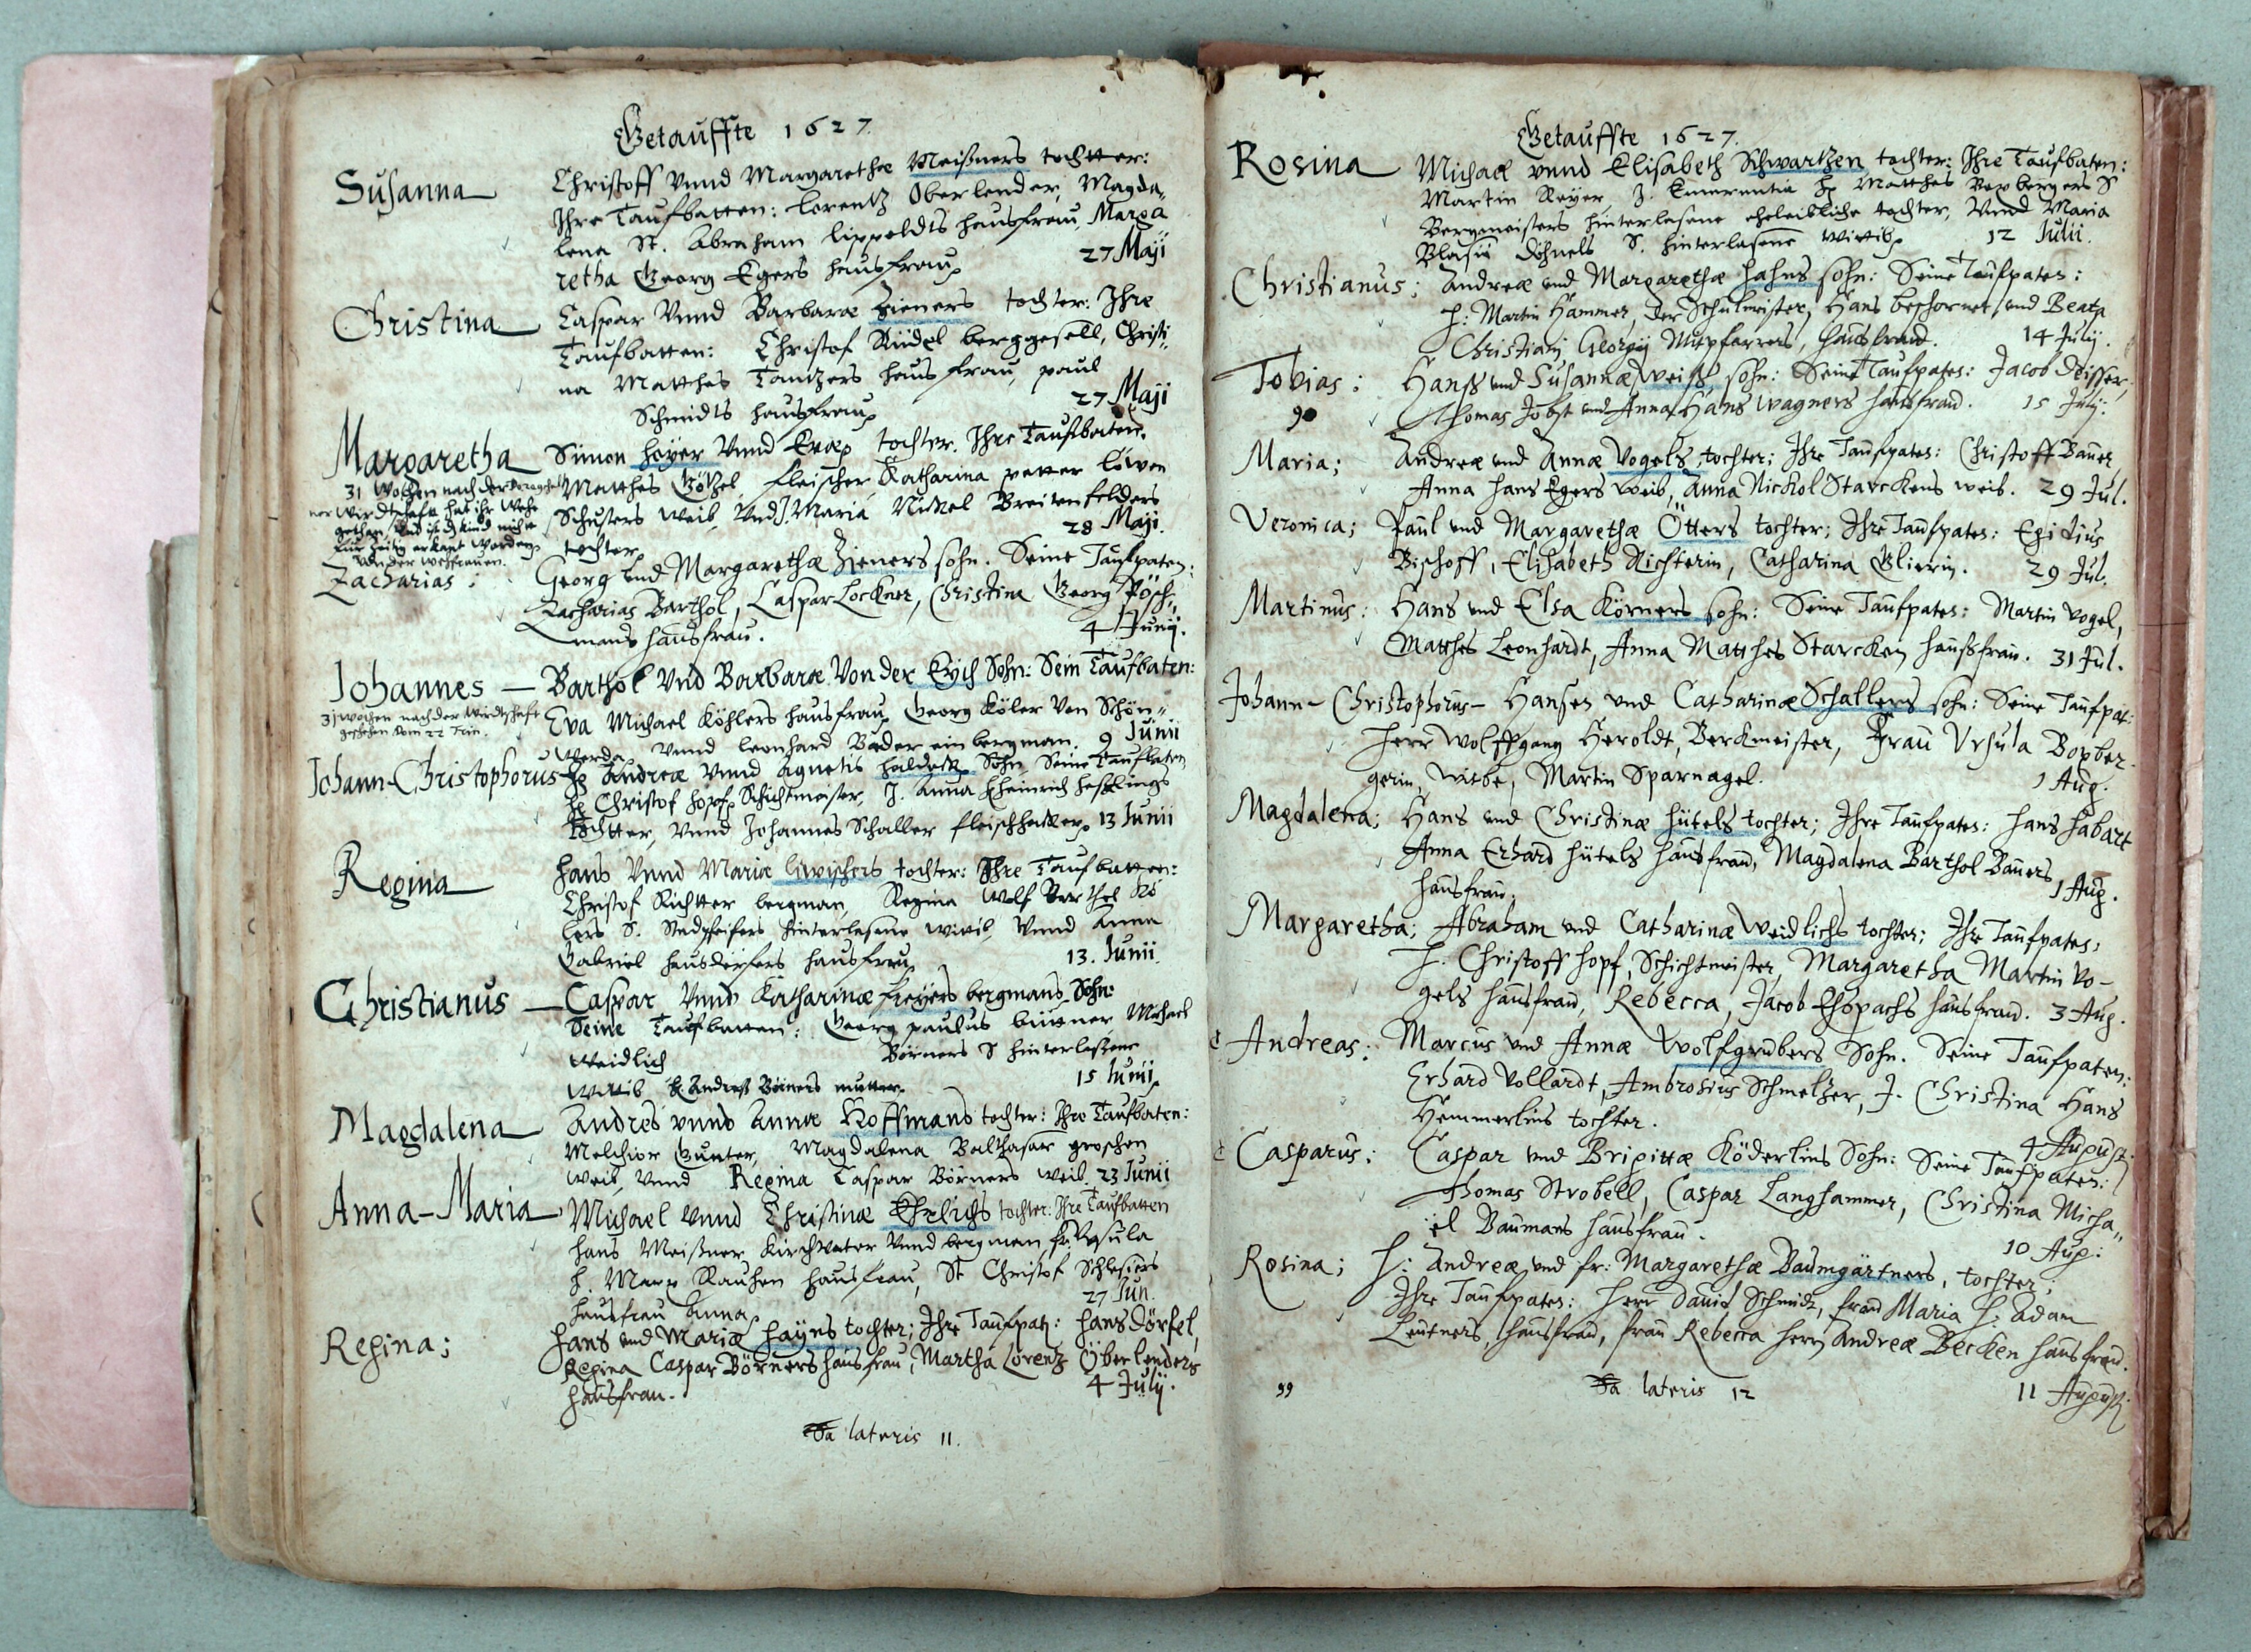 Getauffte 1627.
Susanna
Christoff Vnnd Margarethæ Meißners tochtter:
Ihre Taufbatten: Lorentz Oberlender, Magda,,
lena St. Abraham Lippoldts hausfrau, Marga
retha Georg Egers hausfrau
27 Maji
Christina
Caspar Vnnd Barbaræ Zieners tochter: Ihre
Taufbatten: Christof Rüdel berggesell, Christi,,
na Matthes Tantzers haus frau, paul
Schmidts hausfrau
27 Maji
Margaretha
31 Wochen nach der
Wirdtschafft hat ihr Wehe
gethan, Vnd ist kind nicht
für zeitig erkant worden
von der Wehfrauen.
Simon Heyer Vnnd Evæ tochter. Ihre Taufbaten.
Matthes Götzel, fleischer, Katharina petter Löwen
Schusters Weib, Vnd J. Maria Nickel Breitenfelders
tochter
28 Maji.
Zacharias;
Georg vnd Margarethæ Zieners sohn. Seine Taufpaten:
Zacharias Barthol, Caspar Lockner, Christina Georg Pösch,,
mans hausfrau.
4 Junij.
Johannes —
31 Wochen nach der Wirdtschafft
geschehen Dom 22 Trin.
Barthol Vnd Barbaræ Von der Eych Sohn: Sein Taufbaten:
Eva Michael Köhlers hausfrau Georg Köler Von Schön,,
Werda, Vnnd leonhard Bader ein bergman. 9 Junii
Johann-Christophorus
H Andreæ Vnnd Agnetis Haldeck Sohn Seine Taufbaten
H Christof Hopf Schichtmeister, J. Anna Heinrich
tochtter, Vnnd Johannes Schaller fleischhacker 13 Junii
Regina
Hans Vnnd Mariæ tochter: Ihre Taufbatten:
Christof Richtter bergman, Regina Wolf Barthel Kö
lers S. Stadpfeifers hinterlasene wittib, Vnnd Anna
Gabriel hausdörfers hausfrau
13. Junii.
Christianus —
Caspar Vnnd Katharinæ bergmans Sohn:
Seine Taufbatten: Georg paulus büttner, Michael
Weidlich Börners S hinterlaßene
Wittib H. Andreß Börners mutter.
15 Junii
Magdalena
Andres vnnd Annæ Hoffmans tochter: Ihre Taufbaten:
Melchior Gunter, Magdalena Balthasar groschen
weib, Vnnd Regina Caspar Börners weib. 23 Junii
Anna-Maria
Michael Vnnd Christinæ Ehrlichs tochter: Ihre Taufbatten
hans Meißner Kirchvater Vnnd bergman, fr. Vrsula
H. Marx Rauhen hausfrau, St Christof Schlesiers
hausfrau Anna
27 Jun.
Regina;
Hans vnd Mariæ Hayns tochter; Ihre Taufpat: Hans Dörfel,
Regina Caspar Börners hausfrau, Martha Lorentz Oberlenders
hausfrau.
4 Julij.
Sa lateris 11.
Getauffte 1627.
Rosina
Michael vnnd Elisabeth Schwartzen tochter: Ihre Taufbaten:
Martin Reyer, J. Emerentia H Matthes Boxbergers S
Bergmeisters hinterlasene eheleibliche tochter, Vnnd Maria
Blasii Döhnels S. hinterlasene Wittib
12 Julii.
Christianus;
Andreæ vnd Margarethæ Hahns sohn: Seine Taufpaten:
H: Martin Hammer, Der Schulmeister, Hans beschornet, vnd Beata
Christiani Georgij Mitpfarrers, hausfrau. 14 Julij.
Tobias;
90
Hanß vnd Susannæ Weiß sohn: Seine Taufpates: Jacob
Thomas Jobst vnd Anna Hans Wagners hausfrau. 15 Julij.
Maria;
Andreæ vnd Annæ Vogels tochter; Ihre Taufpates: Christoff Bauer,
Anna Hans Egers weib, Anna Nickol Starckens weib. 29 Jul.
Veronica;
Paul vnd Margarethæ Ötters tochter; Ihre Taufpates: Egidius
Bischoff, Elisabeth Richterin, Catharina Glierin. 29 Jul.
Martinus:
Hans vnd Elsa Körners sohn: Seine Taufpates: Martin Vogel,
Matthes Leonhardt, Anna Matthes Starcken haußfrau. 31 Jul.
Johann-Christophorus- Hansen vnd Catharinæ Schallers sohn: Seine Taufpat:
Herr Wolffgang Heroldt, Berckmeister, Frau Vrsula Boxber-
gerin, witbe, Martin Sparnagel.
1 Aug.
Magdalena;
Hans vnd Christinæ Hütels tochter; Ihre Taufpates: Hans Habart
Anna Erhard Hütels hausfrau, Magdalena Barthol Bauers
hausfrau.
1 Aug.
Margaretha;
Abraham vnd Catharinæ Weidlichs tochter; Ihre Taufpates:
H. Christoff Hopf, Schichtmeister, Margaretha Martin Vo-
gels hausfrau, Rebecca, Jacob hausfrau. 3 Aug.
Andreas;
Marcus vnd Annæ Wolfgrubers Sohn. Seine Taufpaten:
Erhard Vollardt, Ambrosius Schmeltzer, J. Christina Hans
Hemmerlins tochter.
4 August.
Casparus;
Caspar vnd Brigittæ Köderlins Sohn: Seine Taufpaten:
Thomas Strobell, Caspar Langhammer, Christina Micha,,
el Baumans hausfrau.
10 Aug:
Rosina;
H: Andreæ vnd fr: Margarethæ Baumgärtners, tochter;
Ihre Taufpates: Herr David Schmidt, frau Maria H: Adam
Leutners, hausfrau, frau Rebecca herrn Andreæ Becken hausfrau.
99
Sa lateris 12
11 August.